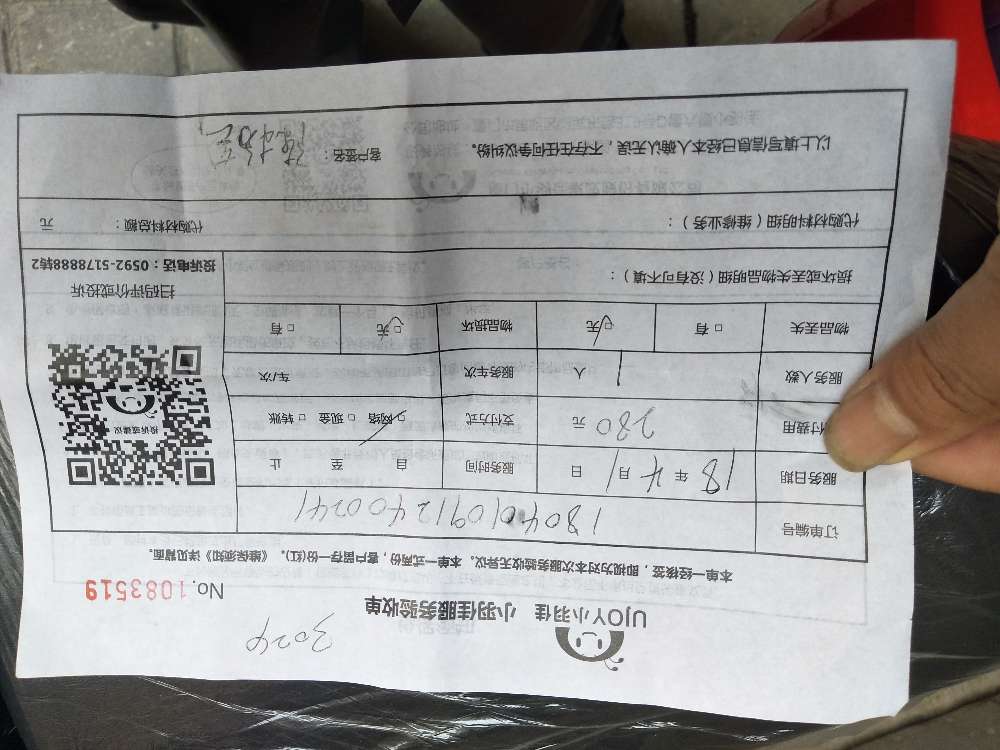 3024
UJOY小羽佳 小羽佳服务验收单
No. 1083519
本单一经核签，即视为对本次服务验收无异议。本单一式两份，客户留存一份(红)。《维保须知》详见背面。
订单编号 1804010912400241
服务日期 18年4月1日 服务时间 自 至 止
付费用 280元 支付方式 □网络 □现金 □转账
服务人数 1人 服务车次 车/次
物品丢失 □有 □无 物品损坏 □无 □有
损坏或丢失物品明细（没有可不填）：
投诉或建议
扫码评价或投诉
投诉电话：0592-5178888转2
代购材料明细（维修业务）： 代购材料总额： 元
以上填写信息已经本人确认无误，不存在任何争议纠纷。 客户签名：